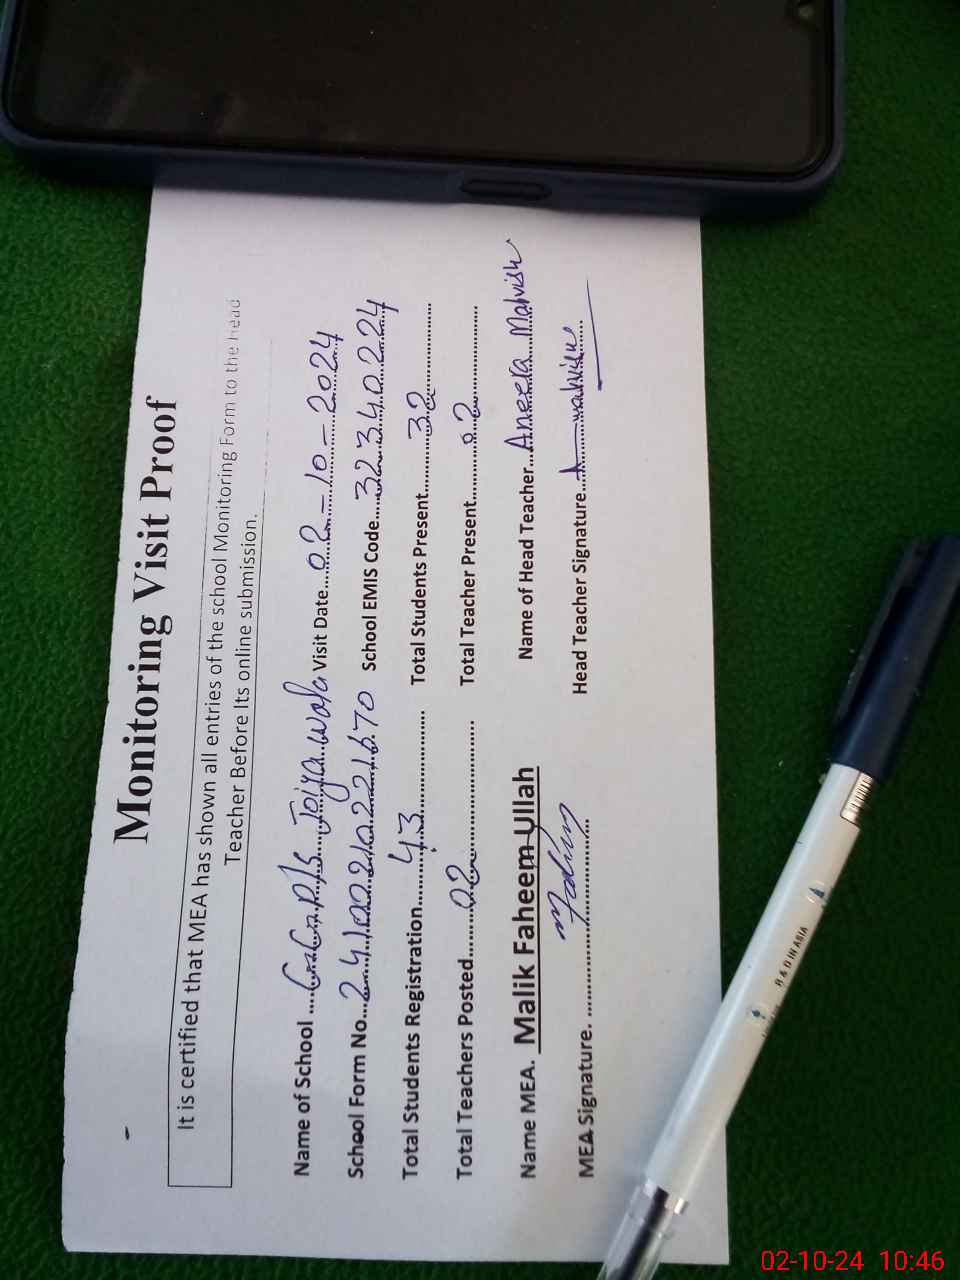 Monitoring Visit Proof
It is certified that MEA has shown all entries of the school Monitoring Form to the Head
Teacher Before Its online submission.
Name of School ....G.G.P/S Joiya wala Visit Date...02-10-2024
School Form No...24100210221670 School EMIS Code...32340224
Total Students Registration...43 Total Students Present...32
Total Teachers Posted...02 Total Teacher Present...02
Name MEA. Malik Faheem Ullah Name of Head Teacher...Aneela Mahvish
MEA Signature. Head Teacher Signature...
R & D IN ASIA
02-10-24 10:46